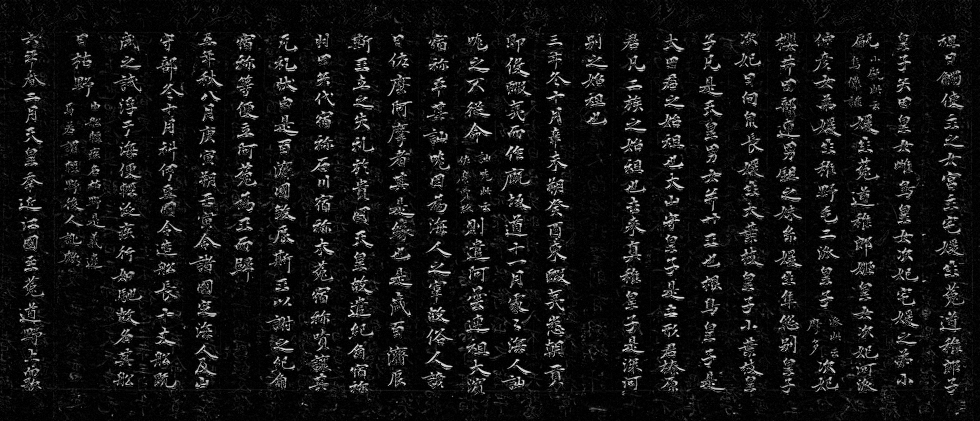 祖日觸使主之女宮主宅媛生菟道稚郎子
皇子矢田皇女雌鳥皇女次妃宅媛之弟小
甂媛生菟道稚郎姬皇女次妃河派
仲彥女弟媛生稚野毛二派皇子派此云摩多次妃
櫻井田部連男鉏之妹糸媛生隼總別皇子
次妃日向泉長媛生大葉枝皇子小葉枝皇
子凡是天皇男女幷廿王也根鳥皇子是
大田君之始祖也大山守皇子是土形君榛原
君凡二族之始祖也去來真稚皇子是深河
別之始祖也
三年冬十月辛未朔癸酉東蝦夷悉朝貢
即役蝦夷而作厩坂道十一月處々海人訕
哤之不從命訕哤此云則遣阿曇連祖大濱
宿祢平其訕哤因為海人之宰故俗人諺
曰佐麼阿摩者其是緣也是歲百濟辰
斯王立之失礼於貴國天皇故遣紀角宿祢
羽田矢代宿祢石川宿祢木菟宿祢嘖讓其
无礼狀由是百濟國殺辰斯王以謝之紀角
宿祢等便立阿花為王而歸
五年秋八月庚寅朔壬寅令諸國定海人及山
守部冬十月科伊豆國令造船長十丈船既
成之試浮于海便輕泛疾行如馳故名其船
曰枯野由船輕疾名枯野是義違焉若謂輕野後人訛歟
六年春二月天皇幸近江國至菟道野上而歌